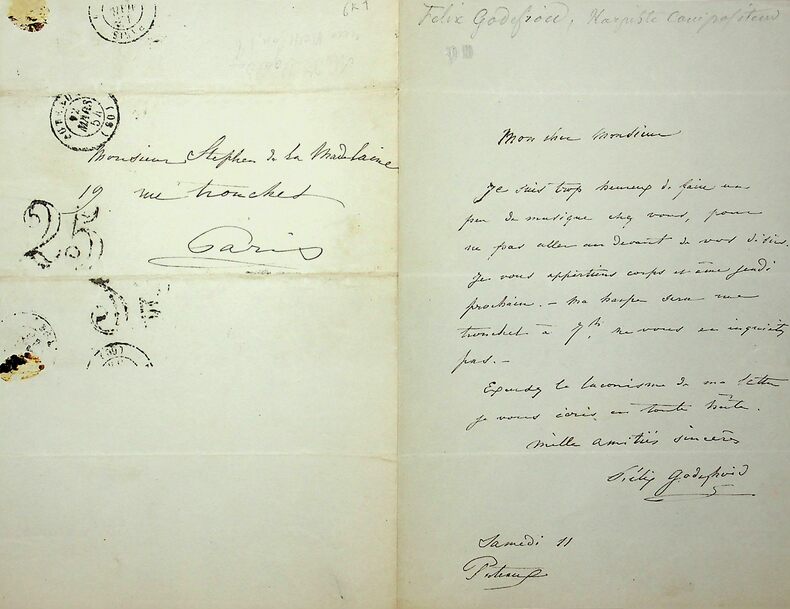 PARIS
6K1
MARS
54
(60)
Monsieur Stephen de la Madelaine
19 rue tronchet
Paris
25
(60)
Felix Godefroid, Harpiste Compositeur
Mon cher Monsieur
Je suis trop heureux de faire un
peu de musique chez vous, pour
ne pas aller au devant de vos désirs.
Je vous appartiens corps et âme jeudi
prochain. – ma harpe sera rue
tronchet à 7h. ne vous en inquietez
pas. –
Excusez le laconisme de ma lettre
je vous écris en toute hâte.
Mille amitiés sincères
Félix Godefroid
Samedi 11
Puteaux